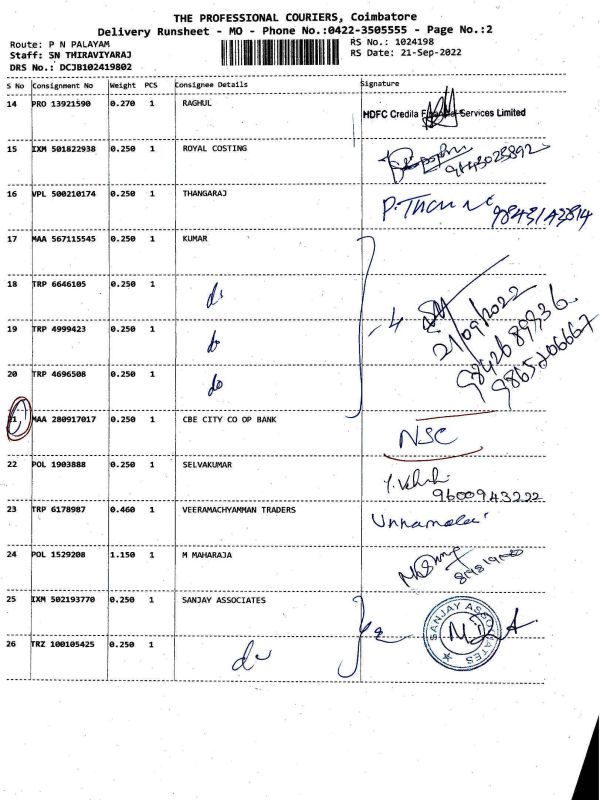 THE PROFESSIONAL COURIERS, Coimbatore
Delivery Runsheet - MO - Phone No.:0422-3505555 - Page No.:2
Route: P N PALAYAM RS No.: 1024198
Staff: SN THIRAVIYARAJ RS Date: 21-Sep-2022
DRS No.: DCJB102419802
S No Consignment No Weight PCS Consignee Details Signature
14 PRO 13921590 0.270 1 RAGHUL HDFC Credila Financial Services Limited
15 IXM 501822938 0.250 1 ROYAL COSTING
16 VPL 500210174 0.250 1 THANGARAJ
17 MAA 567115545 0.250 1 KUMAR
18 TRP 6646105 0.250 1 do
19 TRP 4999423 0.250 1 do - 4 21/09/2022
20 TRP 4696508 0.250 1 do 9865206667
21 MAA 280917017 0.250 1 CBE CITY CO OP BANK NSC
22 POL 1903888 0.250 1 SELVAKUMAR 9600943222
23 TRP 6178987 0.460 1 VEERAMACHYAMMAN TRADERS Unnamalai
24 POL 1529208 1.150 1 M MAHARAJA
25 IXM 502193770 0.250 1 SANJAY ASSOCIATES SANJAY ASSOCIATES
26 TRZ 100105425 0.250 1 do